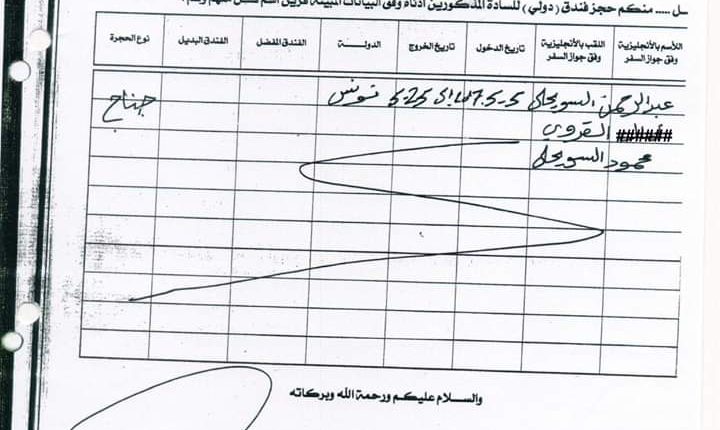 منكم حجز فندق (دولي) للسادة المذكورين أدناه وفق البيانات المبينة قرين اسم كل منهم
الأسم بالأنجليزية وفق جواز السفر
اللقب بالأنجليزية وفق جواز السفر
تاريخ الدخول
تاريخ الخروج
الدولة
الفندق المفضل
الفندق البديل
نوع الحجرة
عبدالرحمن السويحلي تونس جناح
القروي
محمود السويحلي
والسلام عليكم ورحمة الله وبركاته